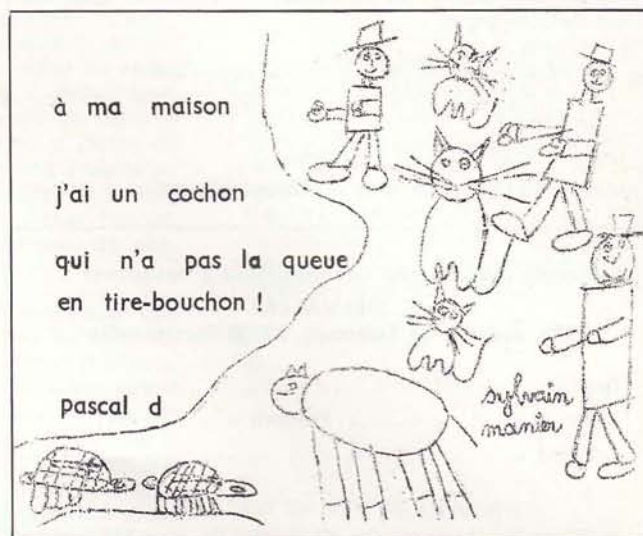 à ma maison
j'ai un cochon
qui n'a pas la queue
en tire-bouchon !
pascal d
sylvain
manier